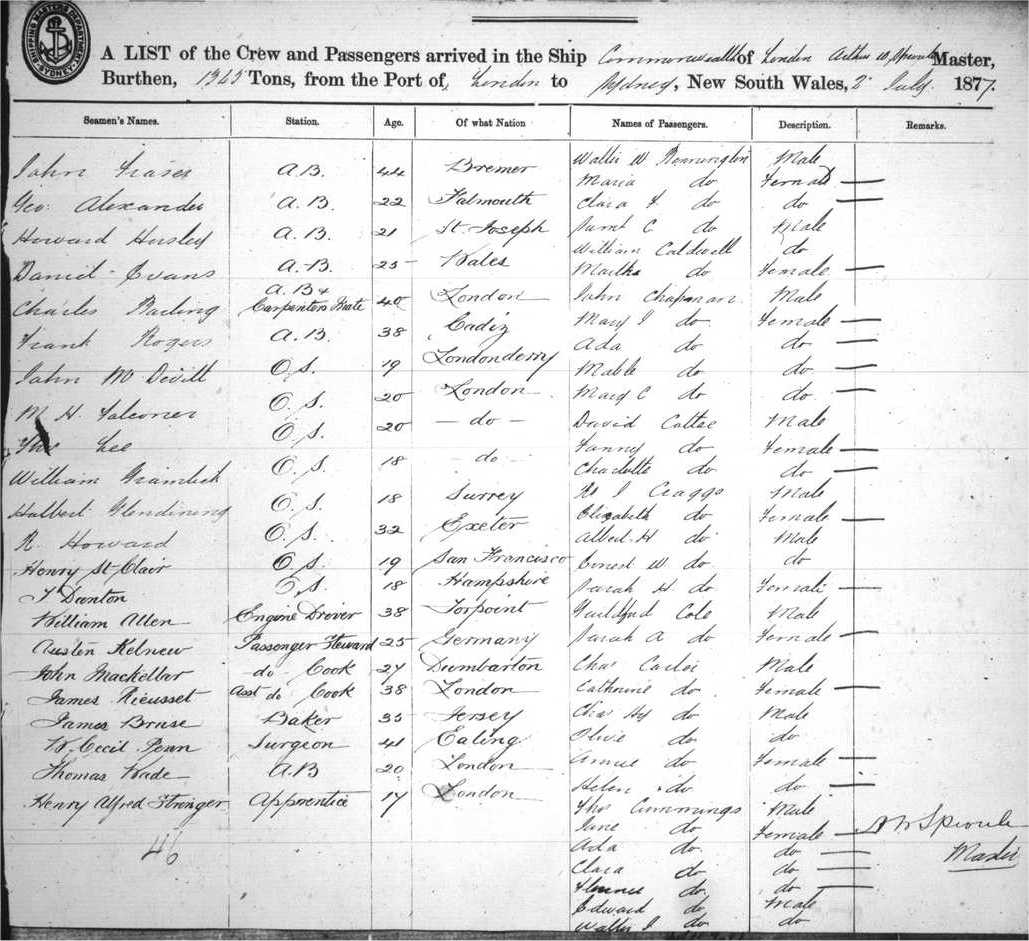 SHIPPING MASTER'S DEPARTMENT SYDNEY
A LIST of the Crew and Passengers arrived in the Ship Commonwealth of London Arthur W Sproule Master,
Burthen, 1345 Tons, from the Port of, London to Sydney, New South Wales, 2 July 1877.
Seamen's Names. Station. Age. Of what Nation Names of Passengers. Description. Remarks.
John Fraser A.B. 44 Bremer
Geo. Alexander A.B. 22 Falmouth
Howard A.B. 21 St Joseph
Daniel Evans A.B. 25 Wales
Charles A.B & Carpenters Mate 40 London
Frank Rogers A.B. 38 Cadiz
John McDevitt O.S. 19 Londonderry
M. H. Falconer O.S. 20 London
Thos Lee O.S. 20 - do -
William O.S. 18 - do -
Halbert Glendining O.S. 18 Surrey
R. Howard O.S. 32 Exeter
Henry St Clair O.S. 19 San Francisco
Danton O.S. 18 Hampshire
William Allen Engine Driver 38 Torpoint
Austen Passenger Steward 25 Germany
John Mackellar do Cook 27 Dumbarton
James Rieusset Asst do Cook 38 London
James Bruse Baker 35 Jersey
W. Cecil Penn Surgeon 41 Ealing
Thomas Wade A.B 20 London
Henry Alfred Stringer Apprentice 17 London
46
Walter W Male
Maria do Female
Clara do do
C do Male
William Caldwell do
Martha do Female
John Chapman Male
Mary J do Female
Ada do do
Mable do do
Mary C do do
David Male
Fanny do Female
Charlotte do do
Craggs Male
Elizabeth do Female
Albert H do Male
Ernest W do do
Sarah H do Female
Guildford Cole Male
Sarah A do Female
Chas Male
Catherine do Female
Hy do Male
do do
Annie do Female
Helen do do
Thos Cummings Male
Jane do Female
Ada do do
Clara do do
do do
Edward do Male
Walter J do do
A W Sproule
Master